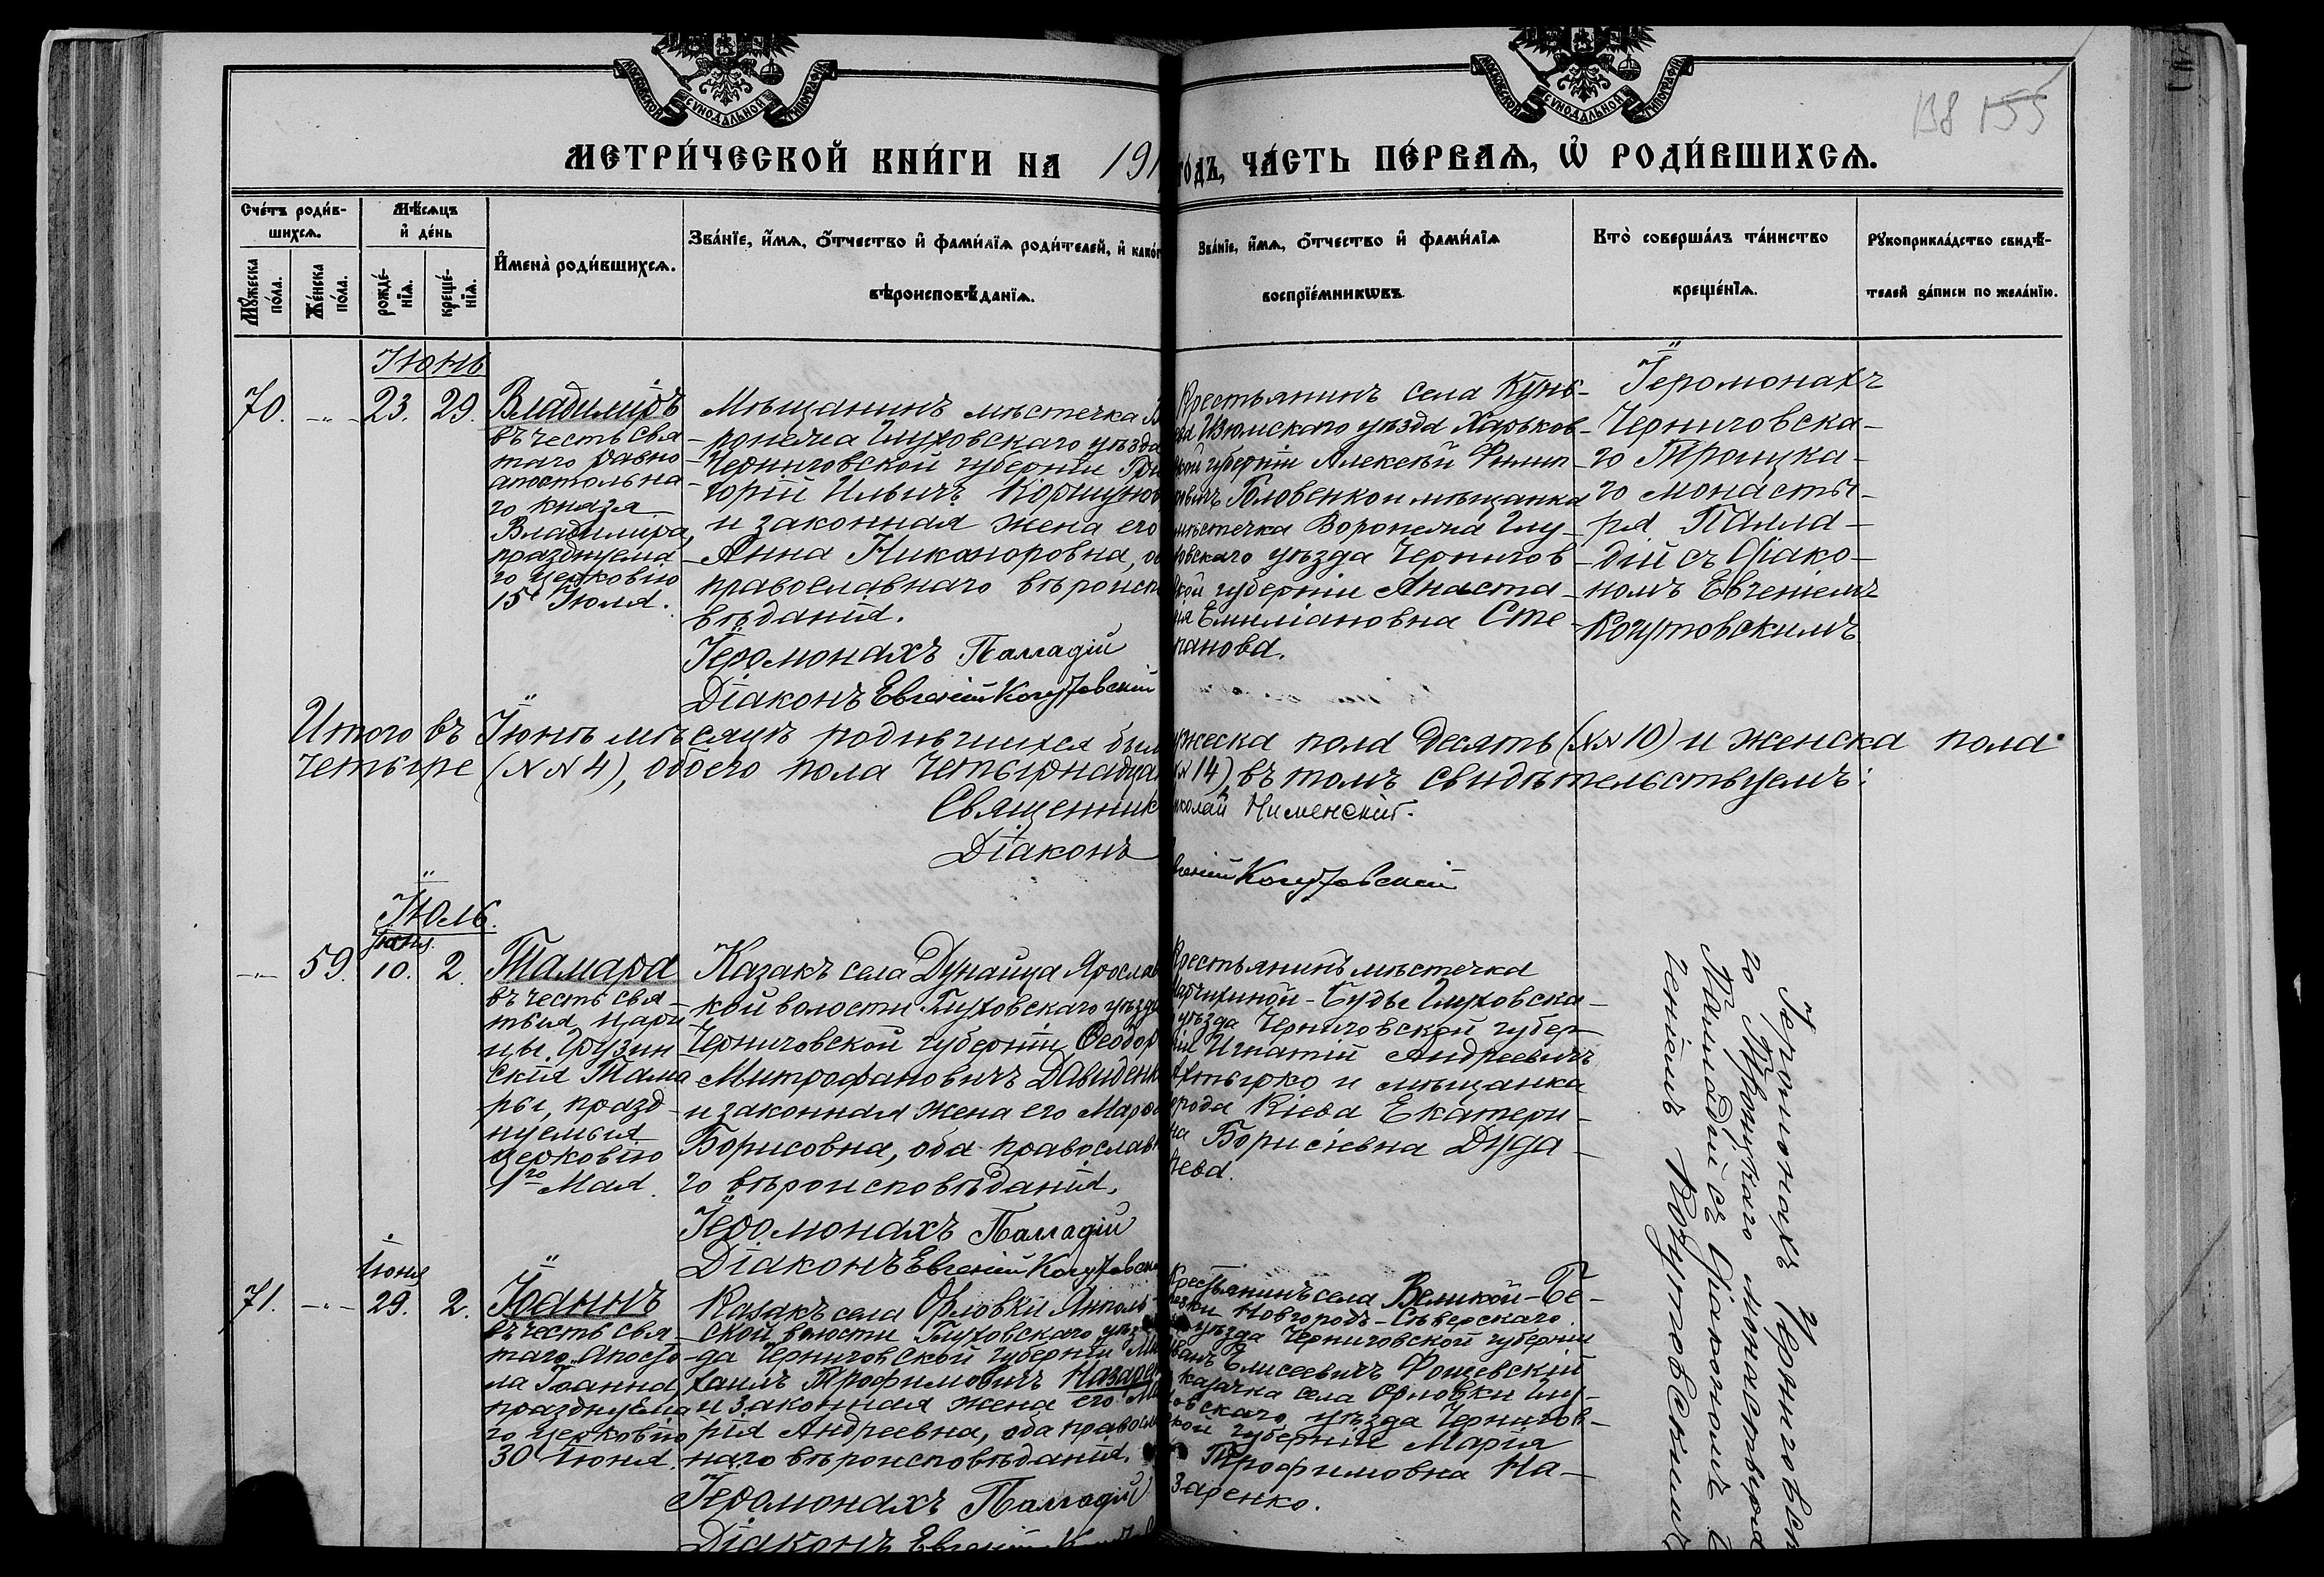 МОСКОВСКОЙ СѴНОДАЛЬНОЙ ТИПОГРАФІИ
МОСКОВСКОЙ СѴНОДАЛЬНОЙ ТИПОГРАФІИ
138 155
МЕТРИ́ЧЕСКОЙ КНИ́ГИ НА 191
го́дъ, ЧА́СТЬ ПЕ́РВАѦ, Ѡ҆ РОДИ́ВШИХСѦ.
Сче́тъ роди́в-
шихсѧ.
Мѣ́сѧцъ
и҆ де́нь
И҆мена̀ роди́вшихсѧ.
Зва́нїе, и҆́мѧ, ѻ҆́тчество и҆ фами́лїѧ роди́телей, и҆ како́г
вѣроисповѣ́данїѧ.
Мꙋ́жеска
по́ла.
Же́нска
по́ла.
рожде́-
нїѧ.
креще́-
нїѧ.
Зва́нїе, и҆́мѧ, ѻ҆́тчество и҆ фами́лїѧ
воспрїе́мникѡвъ.
Кто̀ соверша́лъ та́инство
креще́нїѧ.
Рꙋкоприкла́дство свидѣ́-
телей за́писи по жела́нїю.
Іюнь
70. -„- 23. 29.
Владиміръ
въ честь свя
таго равно
апостольна
го князя
Владиміра,
празднуема
го церковію
15 Іюля.
Мѣщанинъ мѣстечка В
ронежа Глуховскаго уѣзда
Черниговской губерніи Гри
горій Ильичъ Коршунов
и законная жена его
Анна Никаноровна, об
православнаго вѣроисп
вѣданія.
Іеромонахъ Палладій
Діаконъ Евгеній Когутовскій
Крестьянинъ села Кунь-
ва Изюмскаго уѣзда Харьков-
кой губерніи Алексѣй Филип-
повичъ Головенко и мѣщанка
мѣстечка Воронежа Глу-
ховскаго уѣзда Чернигов-
кой губерніи Анаста-
ія Емиліановна Сте-
панова.
Іеромонахъ
Черниговска-
го Троицка-
го монасты-
ря Палла-
дій съ діако-
номъ Евгеніемъ
Когутовскимъ
Итого въ Іюнѣ мѣсяцѣ родившихся был
ужеска пола десять (№№ 10) и женска пола
четыре (№№ 4), обоего пола четырнадца
№ 14), въ томъ свидѣтельствуемъ:
Священник
иколай Нименскій.
Діаконъ
вгеній Когутовскій
Іюль.
Іюня.
-„- 59. 10. 2.
Тамара
въ честь свя-
тыя цари
цы Грузин
скія Тама
ры, празд-
нуемыя
церковію
1го Мая.
Казакъ села Дунайца Ярослав
кой волости Глуховскаго уѣзда
Черниговской губерніи Ѳеодор
Митрофановичъ Давиденк
и законная жена его Марѳа
Борисовна, оба православн
го вѣроисповѣданія.
Іеромонахъ Палладій
Діаконъ Евгеній Когутовскі
Крестьянинъ мѣстечка
арчихиной-Буды Глуховска-
уѣзда Черниговской губер-
ніи Игнатій Андреевичъ
Ахтырко и мѣщанка
города Кіева Екатери-
на Борисіевна Дуда-
рева.
Іеромонахъ Черниговска
го Троицкаго монастыря
Палладій съ діакономъ Е
вгеніемъ Когутовскимъ
Іюня
71. -„- 29. 2.
Іоаннъ
въ честь свя-
таго Апосто
ла Іоанна,
празднуема
го церковію
30 Іюня.
Казакъ села Орловки Ямполь-
ской волости Глуховскаго уѣз
да Черниговской губерніи Ми
хаилъ Трофимовичъ Назарен
и законная жена его Ма
рія Андреевна, оба правосл
наго вѣроисповѣданія.
Іеромонахъ Палладій
Діаконъ Евгеній
Крестьянинъ села Великой-Бе-
резки Новгородъ-Сѣверскаго
уѣзда Черниговской губерніи
Иванъ Елисеевичъ Фошевскій
казачка села Орловки Глу-
ховскаго уѣзда Чернигов-
кой губерніи Марія
Трофимовна На-
заренко.